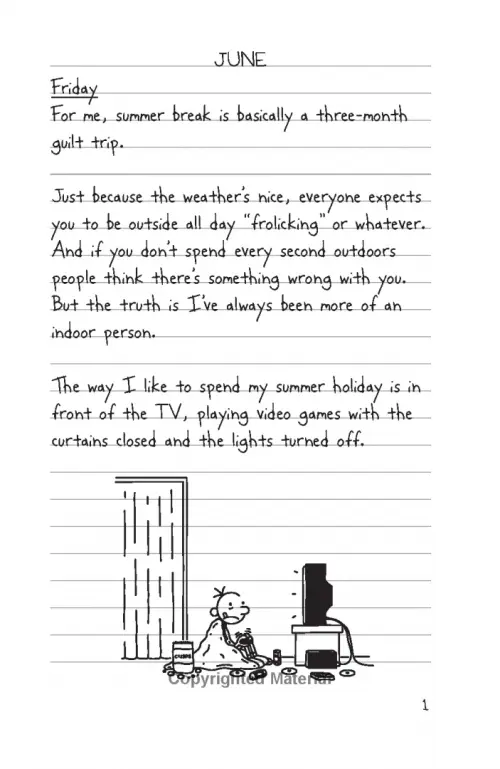 JUNE
Friday
For me, summer break is basically a three-month
guilt trip.
Just because the weather's nice, everyone expects
you to be outside all day "frolicking" or whatever.
And if you don't spend every second outdoors
people think there's something wrong with you.
But the truth is I've always been more of an
indoor person.
The way I like to spend my summer holiday is in
front of the TV, playing video games with the
curtains closed and the lights turned off.
CRISPS
Copyrighted Material
1